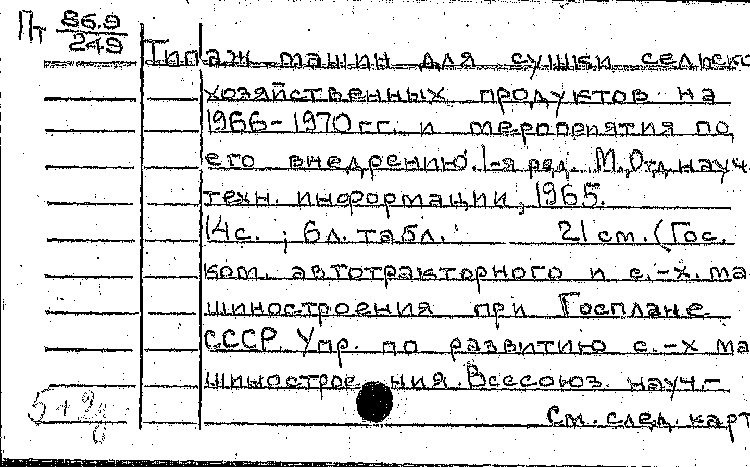 Пт 86.9
249
Типаж машин для сушки сельско
хозяйственных продуктов на
1966-1970гг. и мероприятия по
его внедрению. 1-я ред. М., Отд. науч.
техн. информации, 1965.
14с.; 6л. табл. 21 см. (Гос.
ком. автотракторного и с.-х. ма
шиностроения при Госплане
СССР. Упр. по развитию с.-х ма
шиностроения. Всесоюз. науч.-
См. след. карт